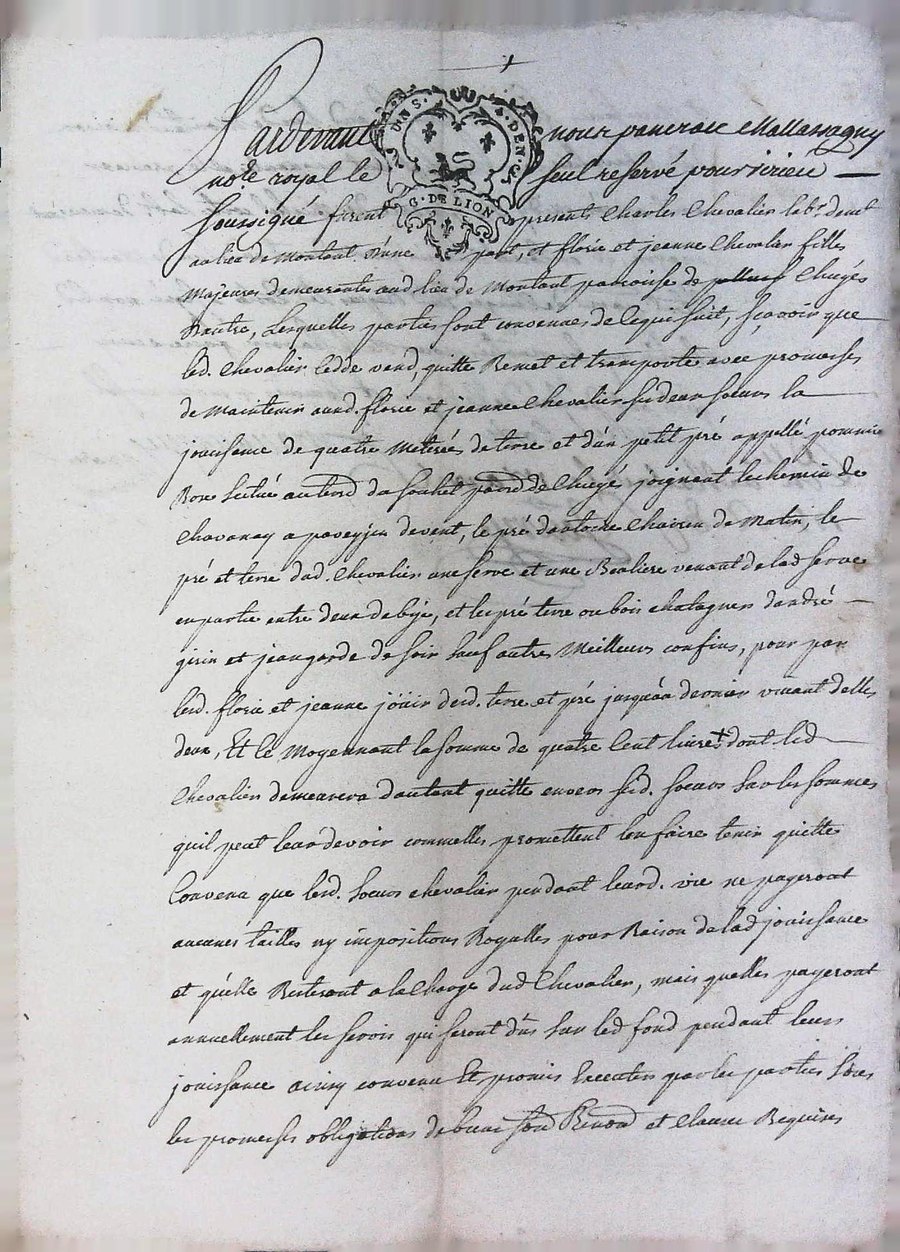 Pardevant nous pancrace Mallassagny
no.re royal le seul reservé pour virieu
G. DE LION
Soussigné furent present Charles Chevalier lab.r dem.t
au lieu de Montant d'une part, et florie et jeanne Chevalier filles
Majeures demeurantes aud lieu de Montant paroisse de Chuyés
Dautre, Lesquelles parties sont convenues de ce qui suit, sçavoir que
led. Chevalier cedde vend, quitte Remet et transporte avec promesses
de Maintenir aux d. florie et jeanne Chevalier ses deux soeurs la
jouissance de quatre Metérés de terre et d'un petit pré appellé pommie
Rose situé au bord du de Chuyé joignant le chemin de
Chavanay a devent, le pré dantoine de Matin, le
pré et terre dud. Chevalier une serve et une Bealiere venant de lad serve
en partie entre deux de bize, et les pré terre ou bois chatagners dandré
girin et jean garde de soir sauf autres Meilleurs confins, pour par
lesd. florie et jeanne jöuir desd. terre et pré jusquáa dernier vivant delles
deux, Et ce Moyennant la somme de quatre Cent livres + dont led
Chevalier demeurera dautant quitte envers sesd. soeurs sur les sommes
quil peut leur devoir commelles promettent len faire tenir quitte
Convenu que lesd. soeurs chevalier pendant leurd. vie ne payeront
aucunes tailles ny impositions Royalles pour Raison de lad jouissance
et quélle Resteront a la Charge dud Chevalier, mais quelles payeront
annuellement les servis qui seront düs sur led fond pendant leurs
jouissance ainsy convenu Et promis Executer par les parties sous
les promesses obligations de biens et Clauses Requises